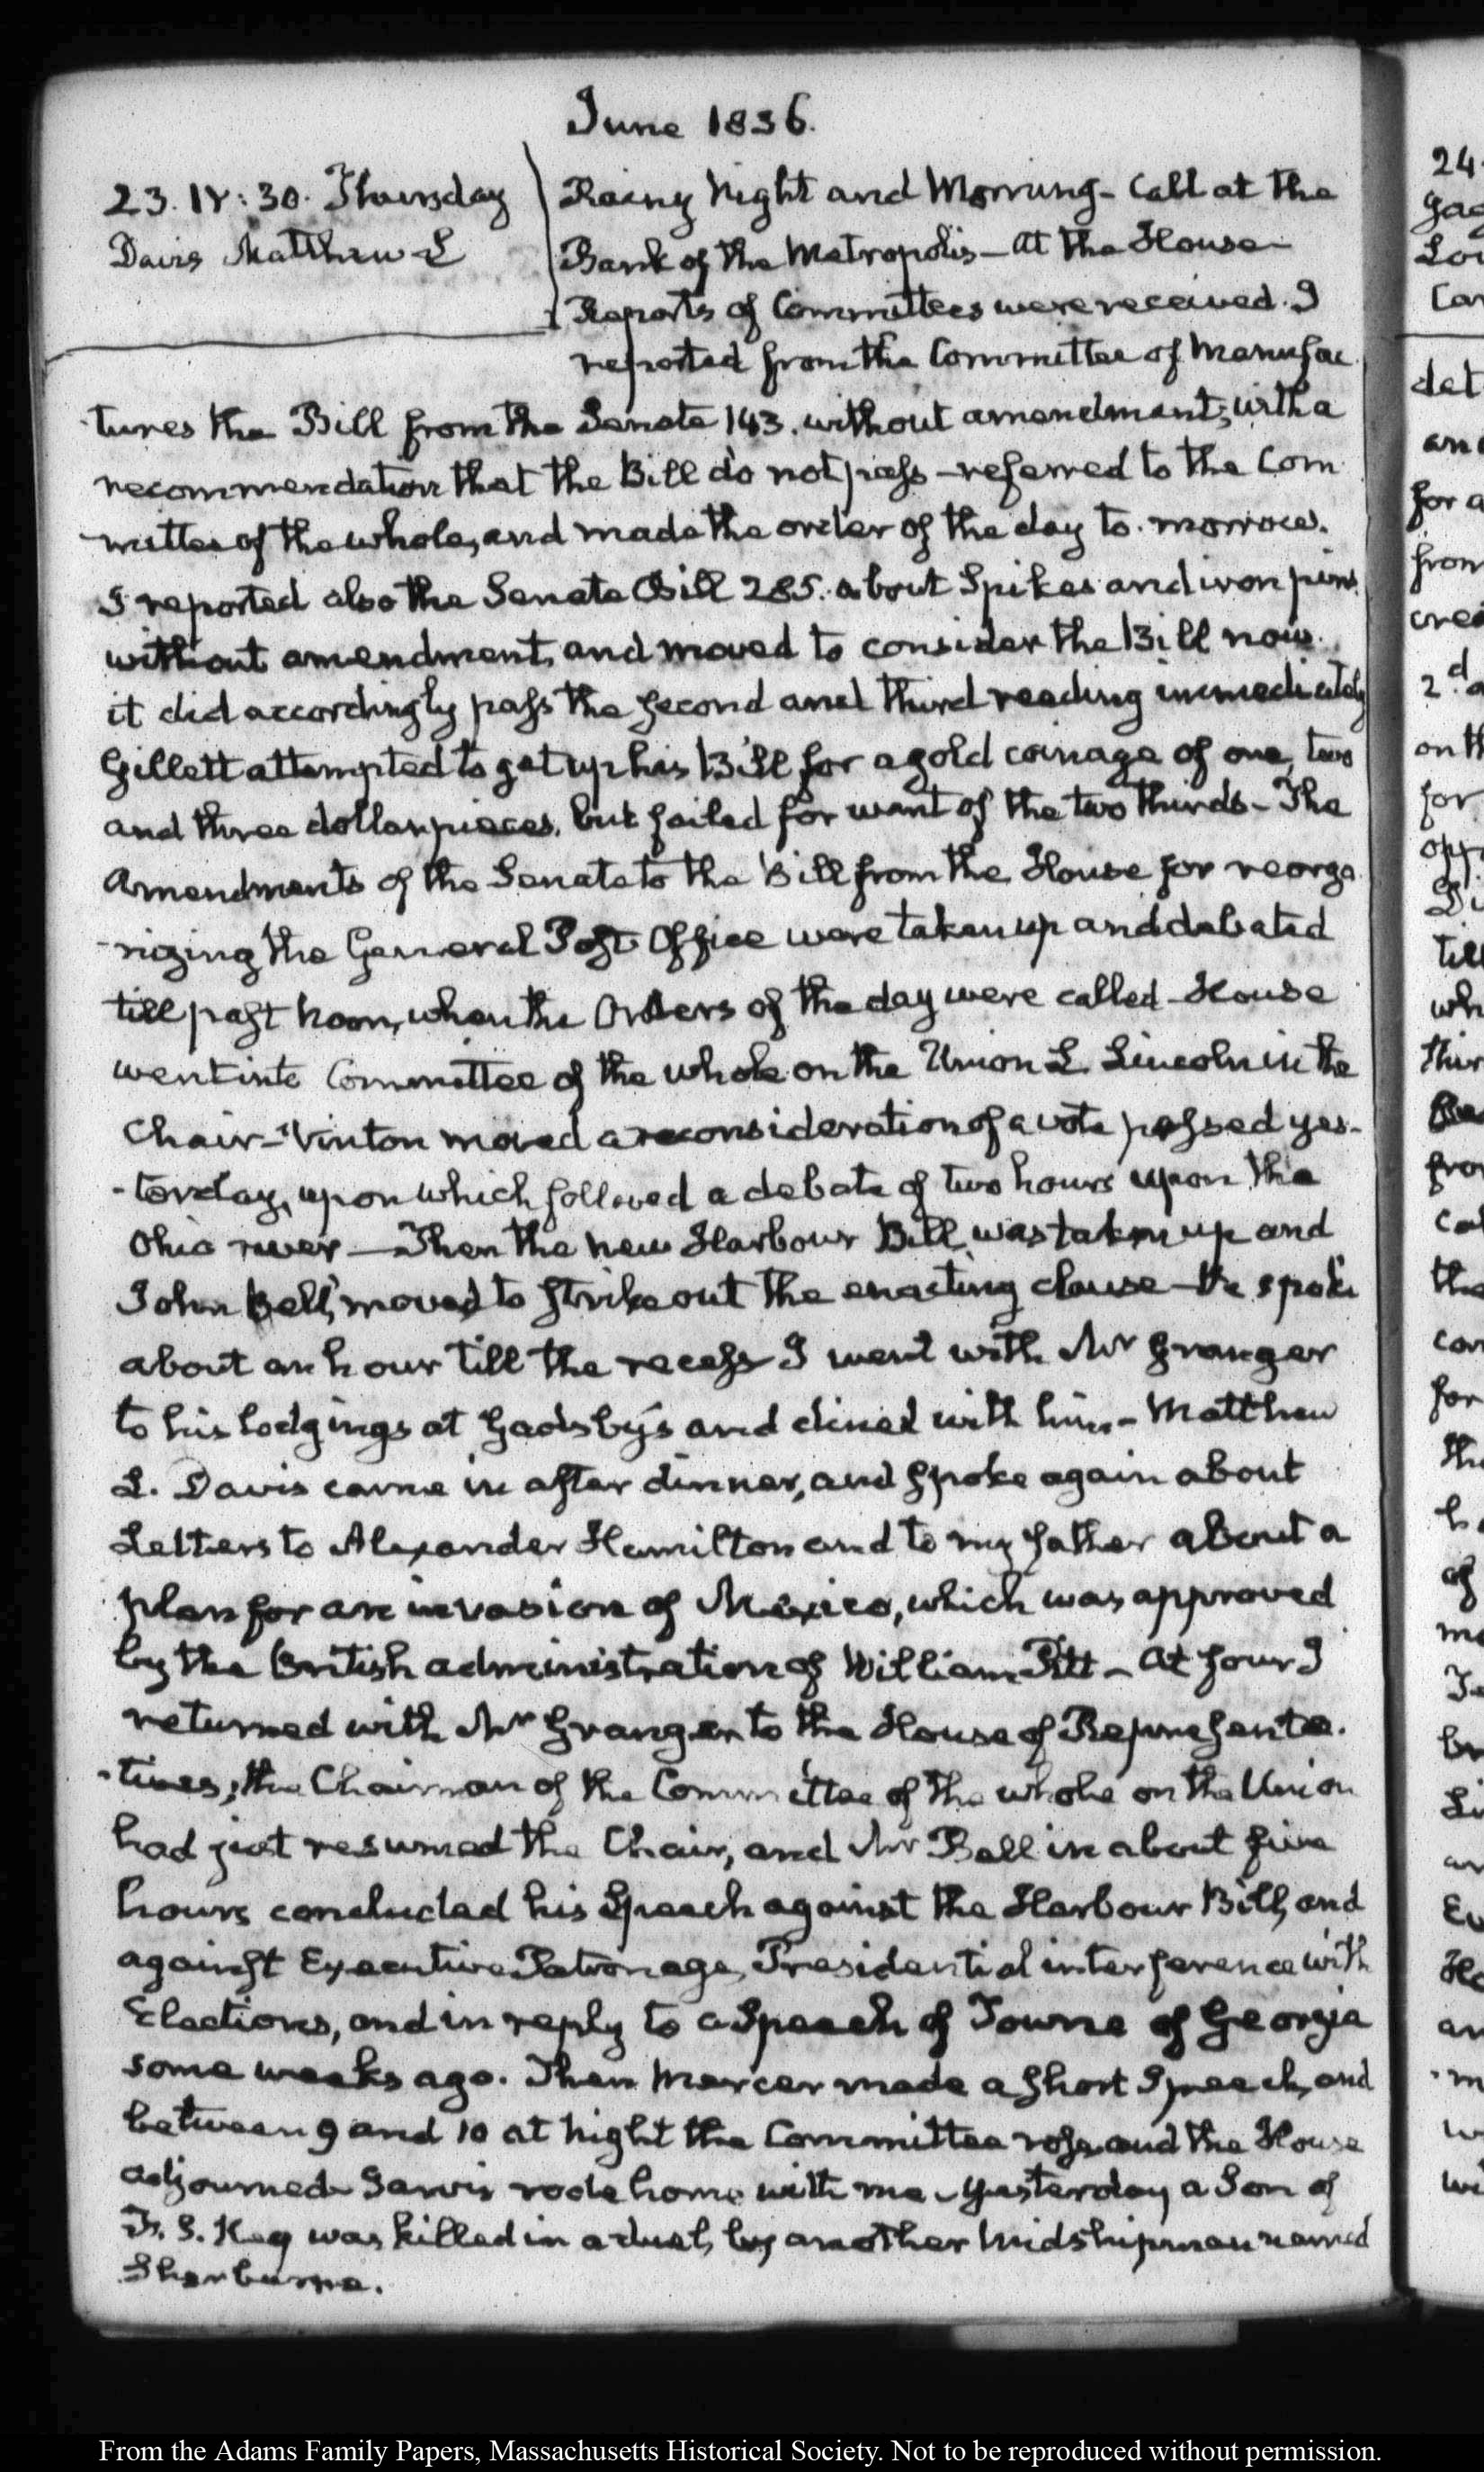 June 1836.
23. IV: 30. Thursday
Davis Matthew L
Rainy Night and Morning - Call at the
Bank of the Metropolis - At the House
Reports of Committees were received. I
reported from the Committee of Manufac
tures the Bill from the Senate 143. without amendment, with a
recommendation that the Bill do not pass - referred to the Com
mittee of the whole, and made the order of the day to-morrow.
I reported also the Senate Bill 285. about Spikes and iron pins
without amendment, and moved to consider the Bill now.
it did accordingly pass the second and third reading immediately
Gillett attempted to get up his Bill for a gold coinage of one, two
and three dollar pieces, but failed for want of the two thirds - The
Amendments of the Senate to the Bill from the House for reorga
-nizing the General Post Office were taken up and debated
till past noon, when the Orders of the day were called - House
went into Committee of the whole on the Union L. Lincoln in the
Chair - Vinton moved a reconsideration of a vote passed yes-
-terday, upon which followed a debate of two hours upon the
Ohio river - Then the new Harbour Bill was taken up and
John Bell, moved to strike out the enacting clause - He spoke
about an hour till the recess I went with Mr Granger
to his lodgings at Gadsby's and dined with him - Matthew
L. Davis came in after dinner, and spoke again about
Letters to Alexander Hamilton and to my father about a
plan for an invasion of Mexico, which was approved
by the British administration of William Pitt - At four I
returned with Mr Granger to the House of Representa-
-tives; the Chairman of the Committee of the whole on the Union
had just resumed the Chair, and Mr Bell in about five
hours concluded his Speech against the Harbour Bill, and
against Executive Patronage, Presidential interference with
Elections, and in reply to a Speech of Towns of Georgia
some weeks ago. Then Mercer made a short Speech, and
between 9 and 10 at night the Committee rose and the House
adjourned - Jarvis rode home with me - yesterday a Son of
F. S. Key was killed in a duel, by another Midshipman named
Sherburne.
24
Lo
det
for a
from
2d
on th
for
till
wh
From the Adams Family Papers, Massachusetts Historical Society. Not to be reproduced without permission.